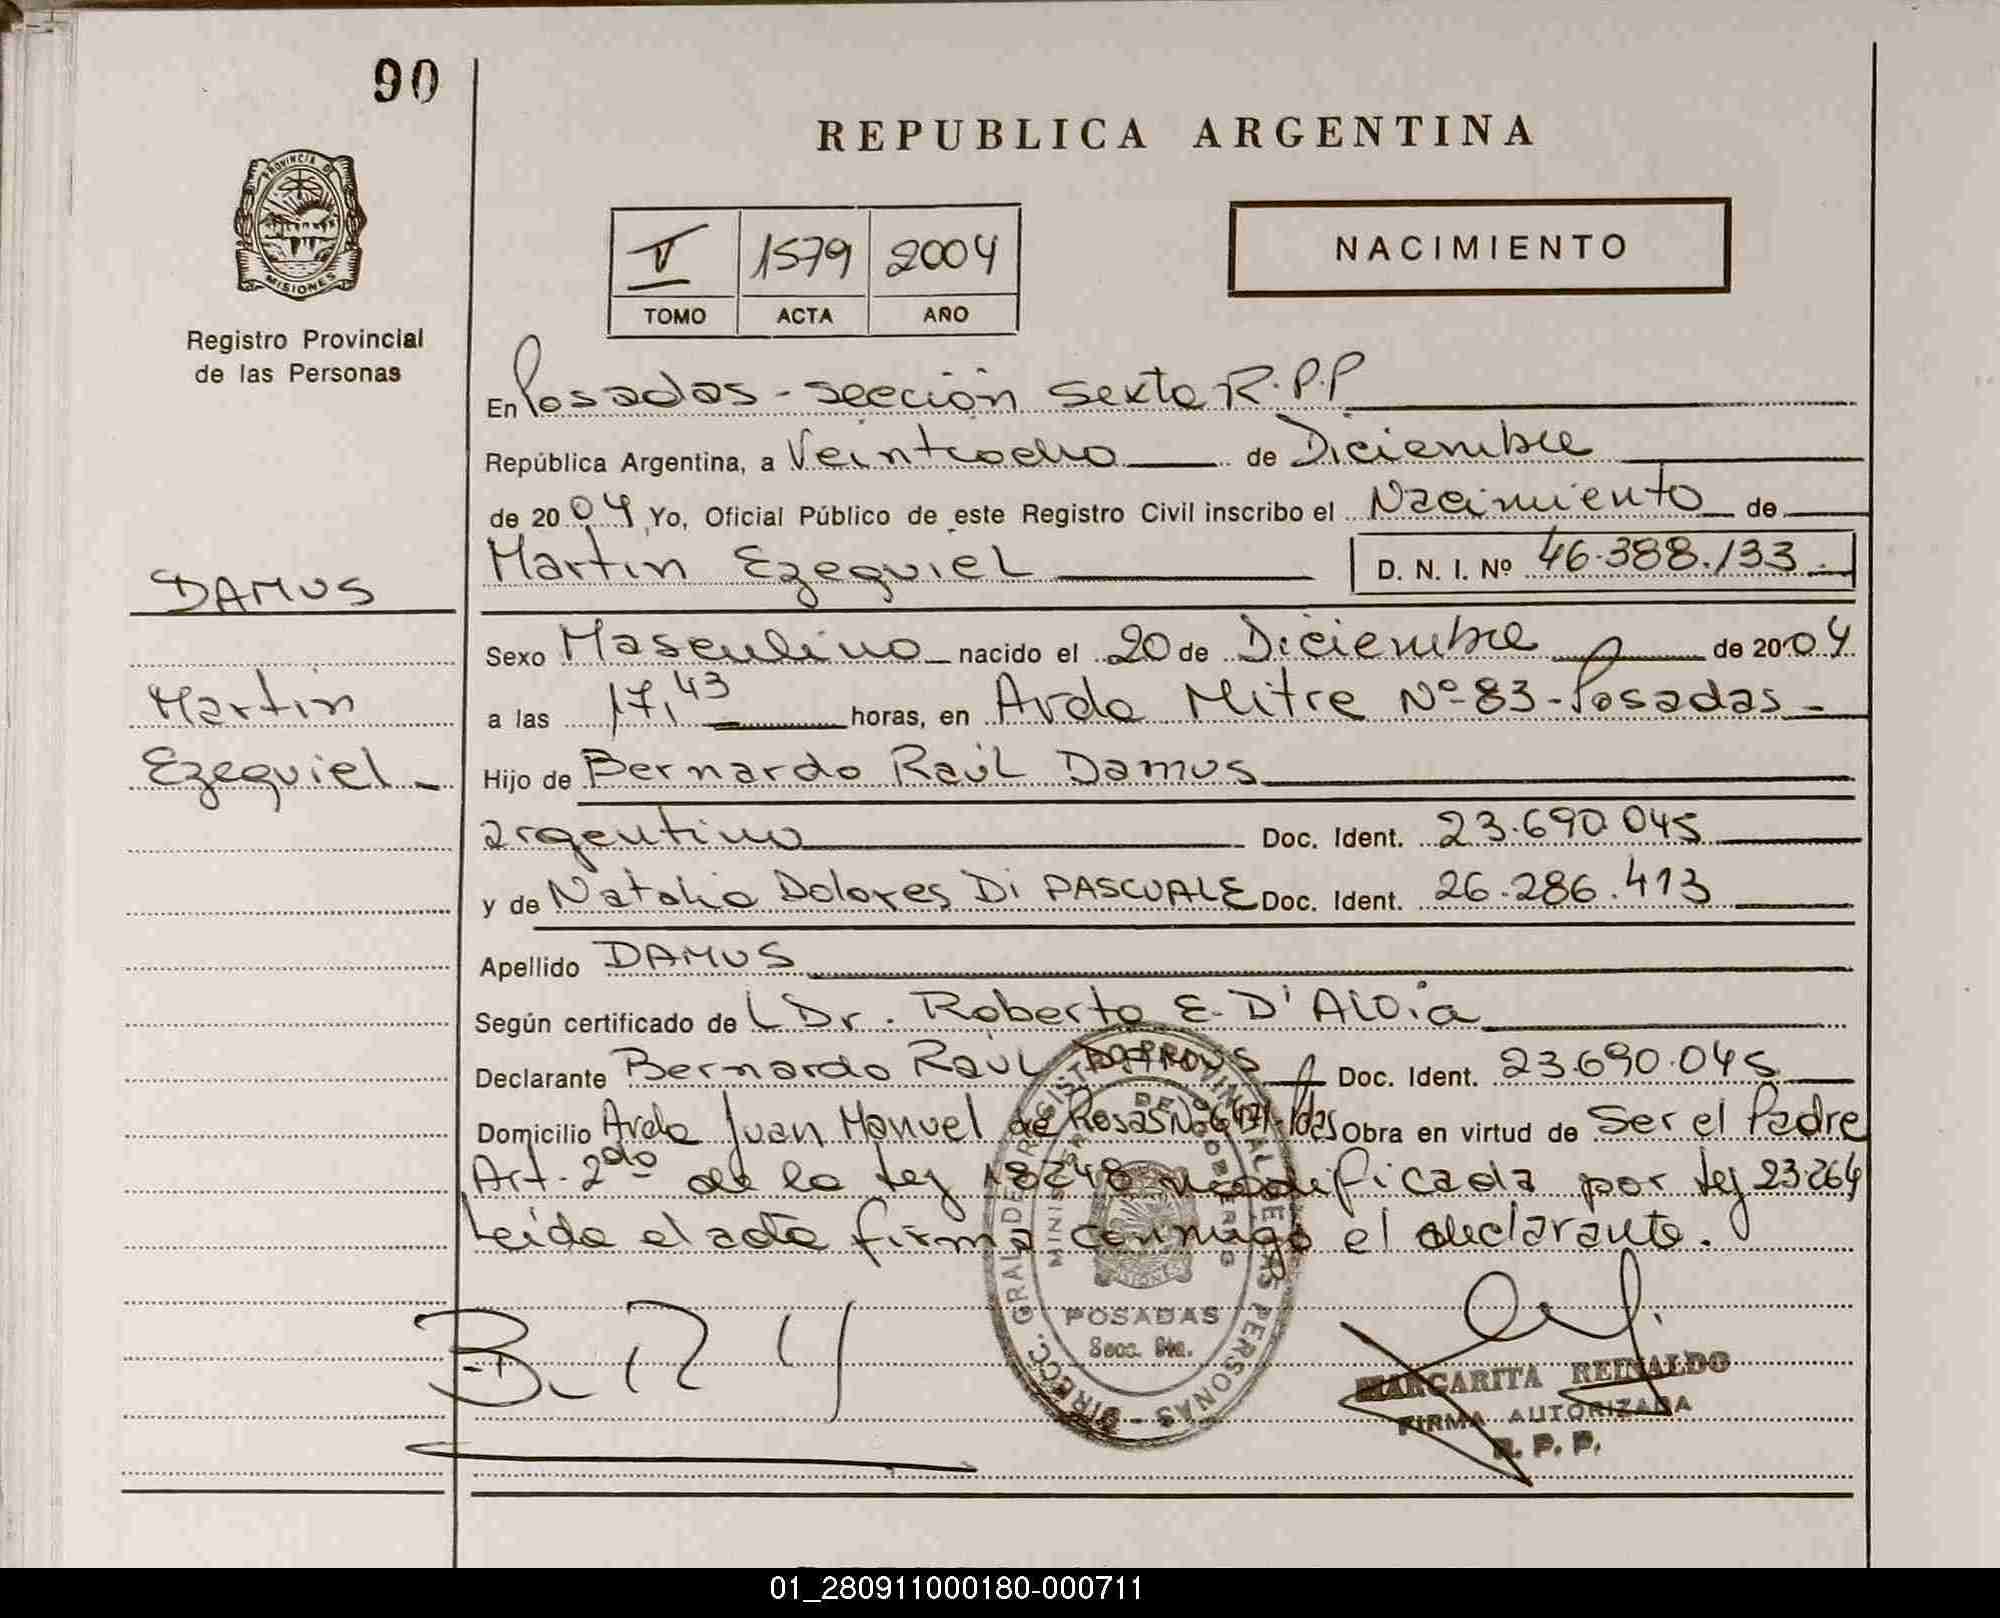 90
REPUBLICA ARGENTINA
PROVINCIA DE
MISIONES
Registro Provincial
de las Personas
V 1579 2004
TOMO ACTA AÑO
NACIMIENTO
En Posadas - sección sexta R.P.P
República Argentina, a Veintiocho de Diciembre
de 2004 Yo, Oficial Público de este Registro Civil inscribo el Nacimiento de
Martin Ezequiel D. N. I. Nº 46.388.133.
DAMUS
Martin
Ezequiel -
Sexo Masculino nacido el 20 de Diciembre de 2004
a las 17,43 horas, en Avda Mitre Nº 83 - Posadas -
Hijo de Bernardo Raúl Damus
argentino Doc. Ident. 23.690.045
y de Natalia Dolores Di PASCUALE Doc. Ident. 26.286.413
Apellido DAMUS
Según certificado de Dr. Roberto E. D'Aloia
Declarante Bernardo Raúl Doc. Ident. 23.690.045
Domicilio Avda Juan Manuel de Rosas Obra en virtud de Ser el Padre
Art. 2do de la Ley 18248 modificada por Ley 23.264
Leída el acta firma conmigo el declarante.
DIRECC. GRAL DE REGISTRO PROVINCIAL DE LAS PERSONAS
POSADAS
Secc.
MARGARITA REINALDO
FIRMA AUTORIZADA
R. P. P.
01_280911000180-000711